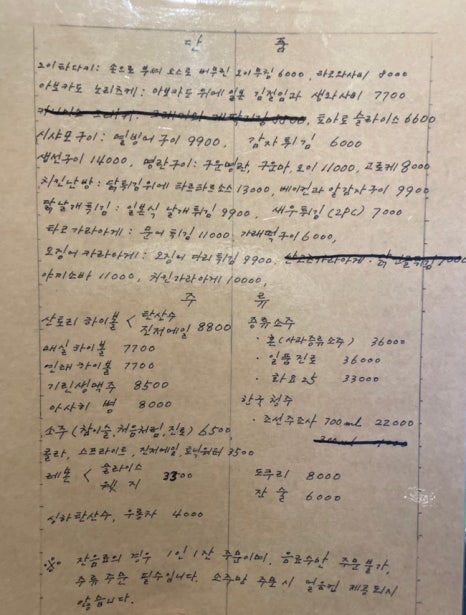 단 품
오이타다끼: 손으로 부셔 소스로 버무린 오이무침 6000, 타코와사비 8000
아보카도 노리즈케: 아보카도 위에 일본 김절임과 생와사비 7700
토마토 슬라이스 6600
시샤모구이: 열빙어구이 9900, 감자튀김 6000
생선구이 14000, 명란구이: 구운명란, 구운마, 오이 11000, 고로케 8000
치킨난방: 닭튀김위에 타르타르소스 13000, 베이컨과 알감자구이 9900
닭날개튀김: 일본식 날개튀김 9900, 새우튀김(2PC) 7000
타코가라아게: 문어튀김 11000, 가래떡구이 6000,
오징어 카라아게: 오징어 다리튀김 9900,
야끼소바 11000, 치킨가라아게 10000,
주 류
산토리 하이볼 < 탄산수 진저에일 8800
매실 하이볼 7700
하이볼 7700
기린생맥주 8500
아사히 병 8000
소주 (참이슬, 처음처럼, 진로) 6500
콜라, 스프라이트, 진저에일, 토닉워터 3500
레몬 < 슬라이스 웻지 3500
탄산수, 우롱차 4000
증류소주
· 혼(사라증류소주) 36000
· 일품진로 36000
· 화요25 33000
한국청주
· 조선주조사 700ml 22000
도쿠리 8000
잔술 6000
※ 잔음료의 경우 1인 1잔 주문이며, 음료수만 주문불가,
주류 주문 필수입니다. 소주만 주문시 얼음컵 제공되지
않습니다.